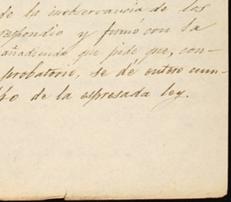 de la inobservancia de los
respondio y firmó con la
añadiendo que pide que, con-
probatorio, se dé entero cum-
to de la espresada ley.